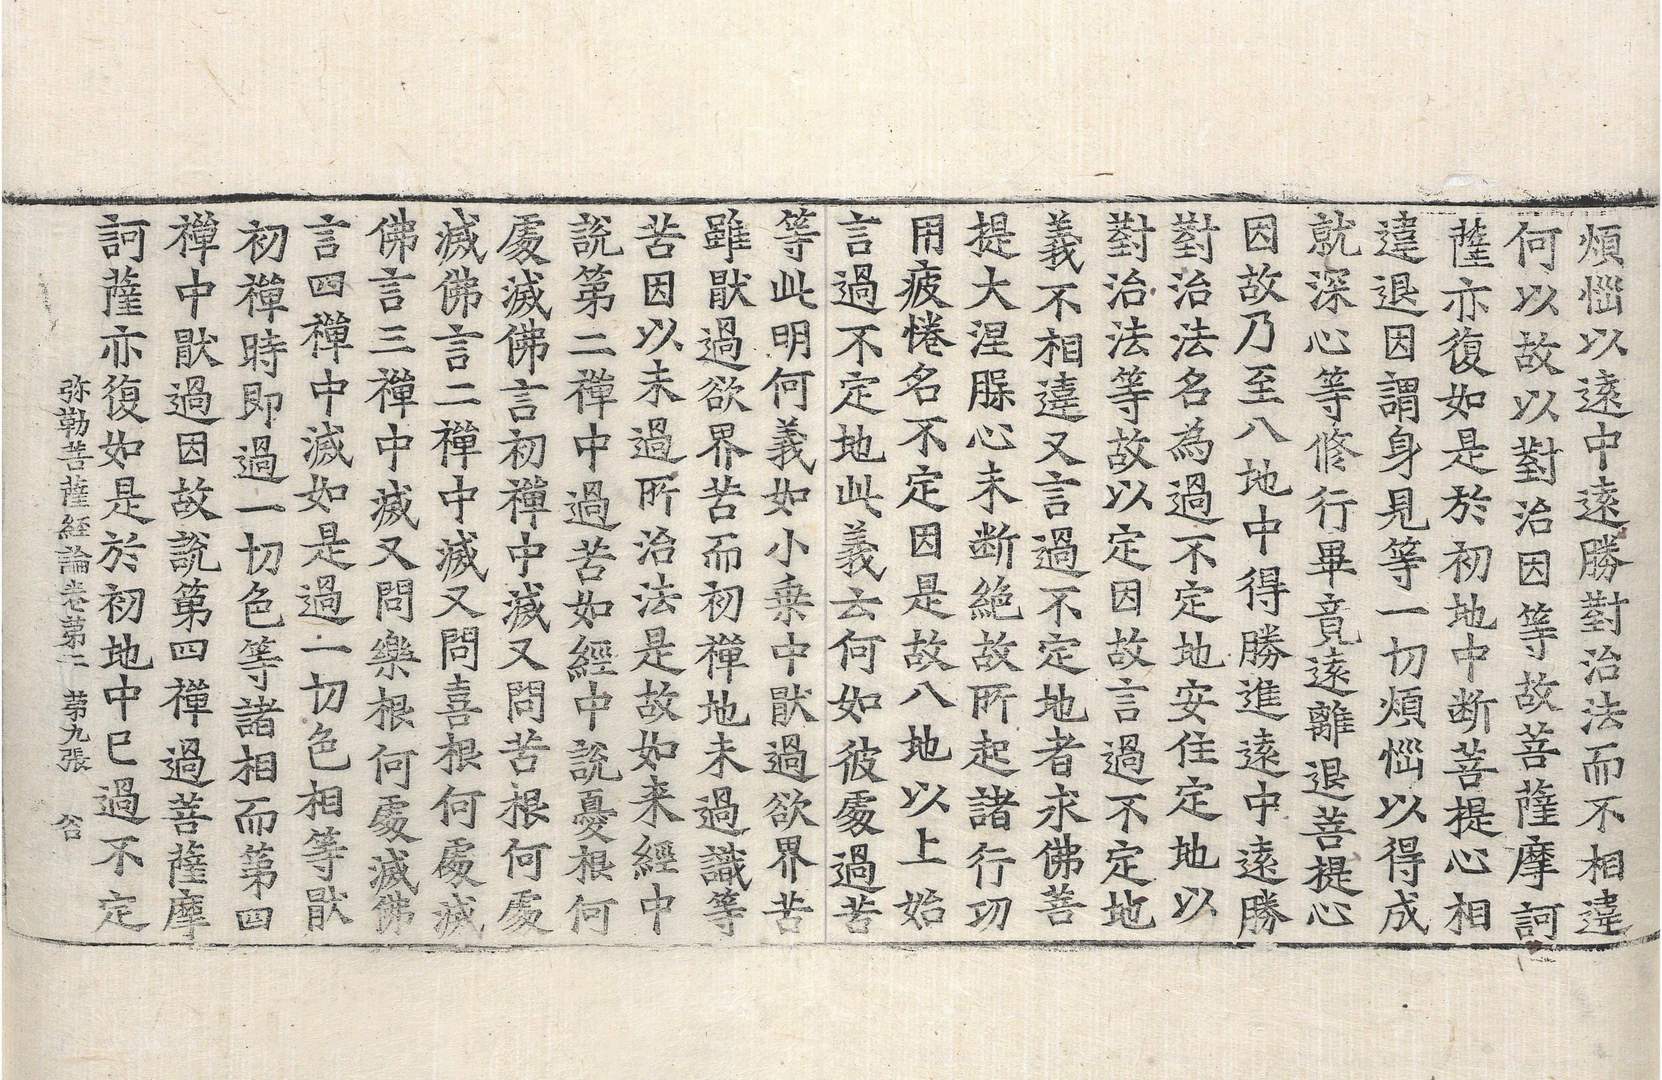 煩惱以遠中遠勝對治法而不相違
何以故以對治因等故菩薩摩訶
薩亦復如是於初地中断菩提心相
違退因謂身見等一切煩惱以得成
就深心等修行畢竟遠離退菩提心
因故乃至八地中得勝進遠中遠勝
對治法名為過不定地安住定地以
對治法等故以定因故言過不定地
義不相違又言過不定地者求佛菩
提大涅槃心未断絶故所起諸行功
用疲惓名不定因是故八地以上始
言過不定地此義云何如彼處過苦
等此明何義如小乗中猒過欲界苦
雖猒過欲界苦而初禪地未過識等
苦因以未過所治法是故如来經中
說第二禪中過苦如經中說憂根何
處滅佛言初禪中滅又問苦根何處
滅佛言二禪中滅又問喜根何處滅
佛言三禪中滅又問樂根何處滅佛
言四禪中滅如是過一切色相等猒
初禪時即過一切色等諸相而第四
禪中猒過因故説第四禪過菩薩摩
訶薩亦復如是於初地中已過不定
弥勒菩薩經論卷苐二　苐九張　谷